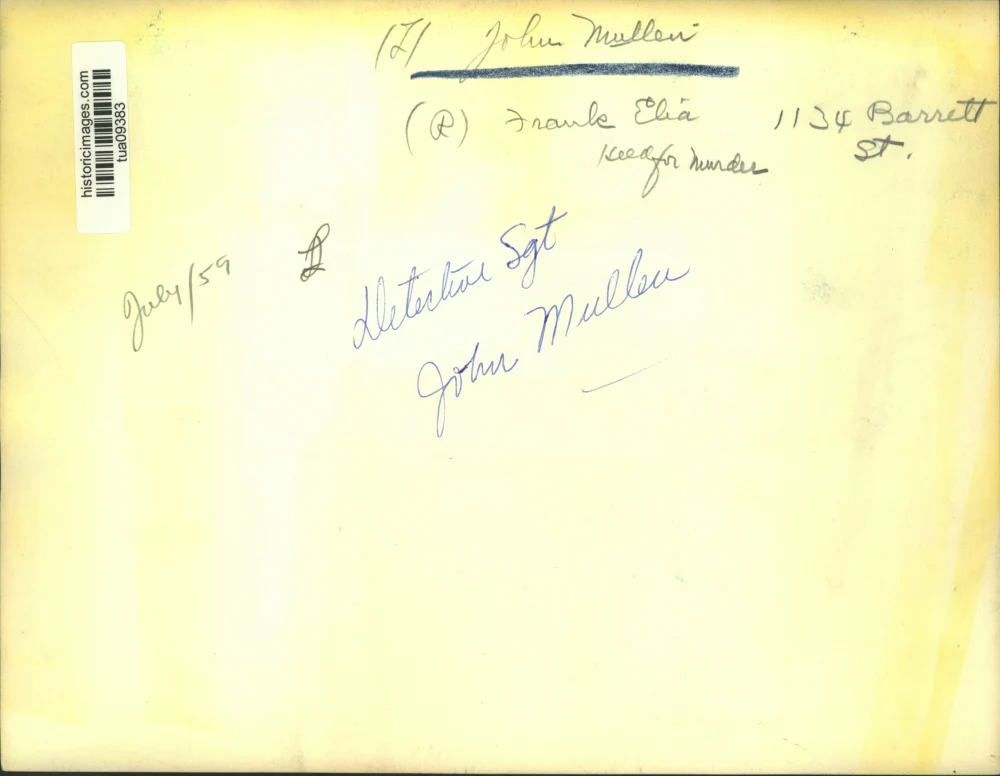 (L) John Mullen
(R) Frank Elia 1134 Barrett
St.
for Murder
historicimages.com
tua09383
July/59
Detective Sgt
John Mullen